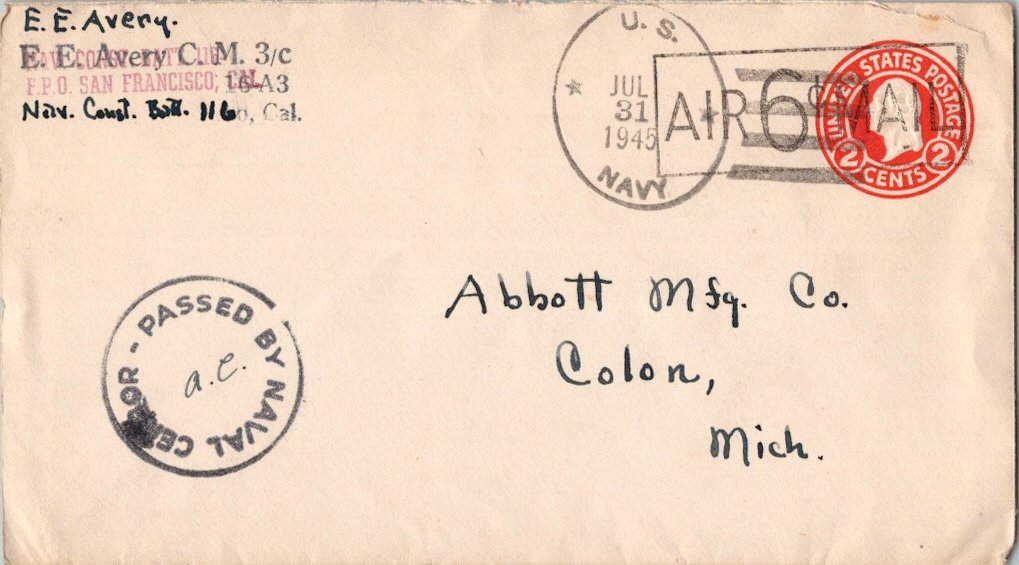 E. E. Avery.
E. E. Avery C. M. 3/c
NAV. CONST. BATT. 116
F.P.O. SAN FRANCISCO, CAL.
16-A3
Nav. Const. Batt. 116
Cal.
U. S.
JUL
31
1945
NAVY
AIR 6¢ MAIL
UNITED STATES POSTAGE
2 CENTS 2
PASSED BY NAVAL CENSOR
a. e.
Abbott Mfg. Co.
Colon,
Mich.